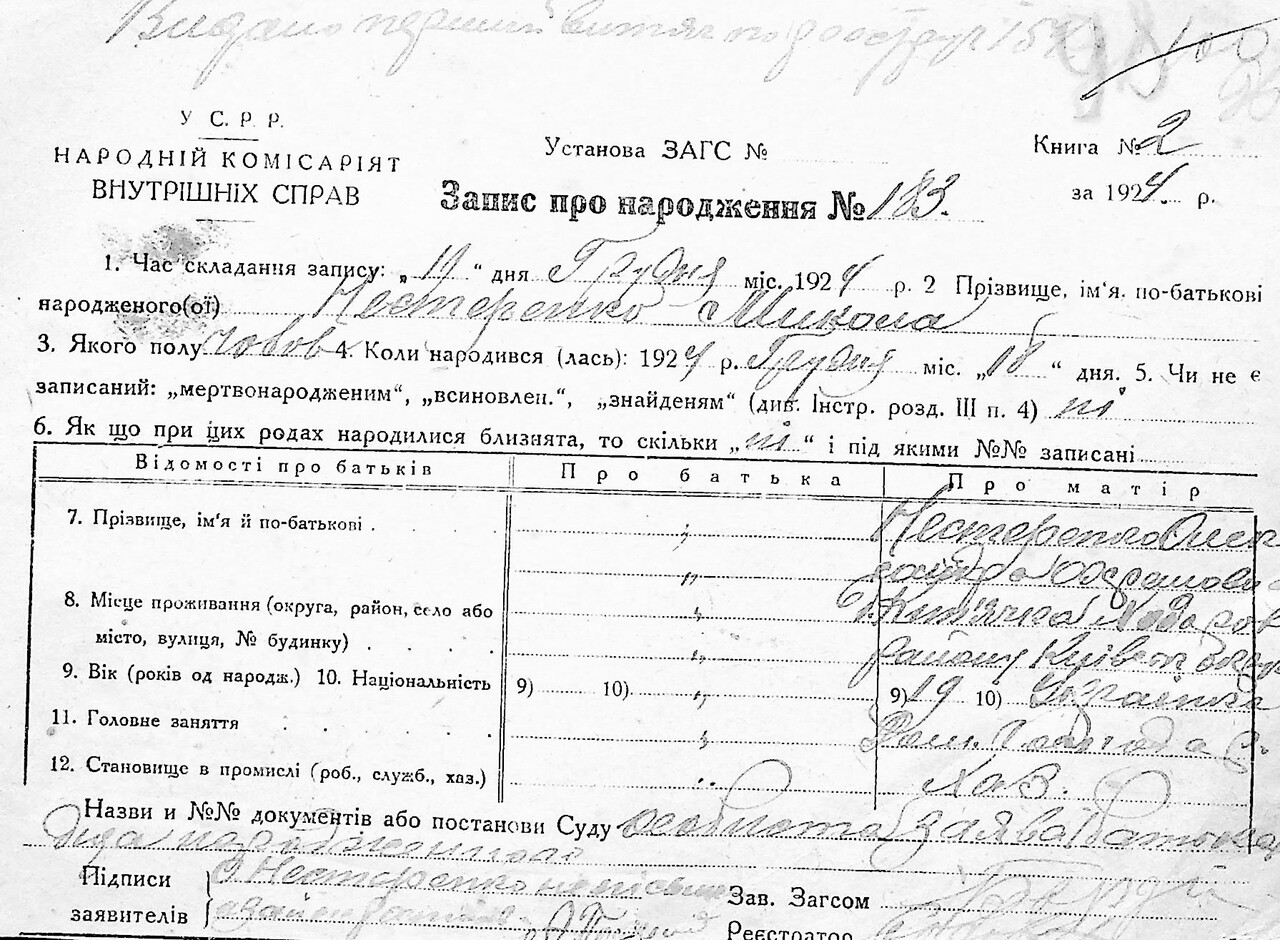 Видано перший витяг по реєстру 15
98 100
У С. Р. Р.
НАРОДНІЙ КОМІСАРІЯТ
ВНУТРІШНІХ СПРАВ
Установа ЗАГС №
Книга № 2
за 1924 р.
Запис про народження № 183.
1. Час складання запису: „19“ дня Грудня міс. 1924 р. 2 Прізвище, ім'я. по-батькові
народженого(ої) Нестеренко Микола
3. Якого полу чолов 4. Коли народився (лась): 1924 р. Грудня міс. „18“ дня. 5. Чи не є
записаний: „мертвонародженим“, „всиновлен.“, „знайденям“ (див. Інстр. розд. III п. 4) ні
6. Як що при цих родах народилися близнята, то скільки „ні“ і під якими №№ записані
Відомості про батьків Про батька Про матір
7. Прізвище, ім'я й по-батькові . Нестеренко Олек
8. Місце проживання (округа, район, село або
місто, вулиця, № будинку) . . . . району Київск округи
9. Вік (років од народж.) 10. Національність 9) 10) 9) 19 10) Українка
11. Головне заняття . . . . Дом.
12. Становище в промислі (роб., служб., хаз.) Хаз.
Назви и №№ документів або постанови Суду особиста заява батька
Діда народженного
Підписи О Нестеренко неписьм
заявителів
Зав. Загсом
Реєстратор